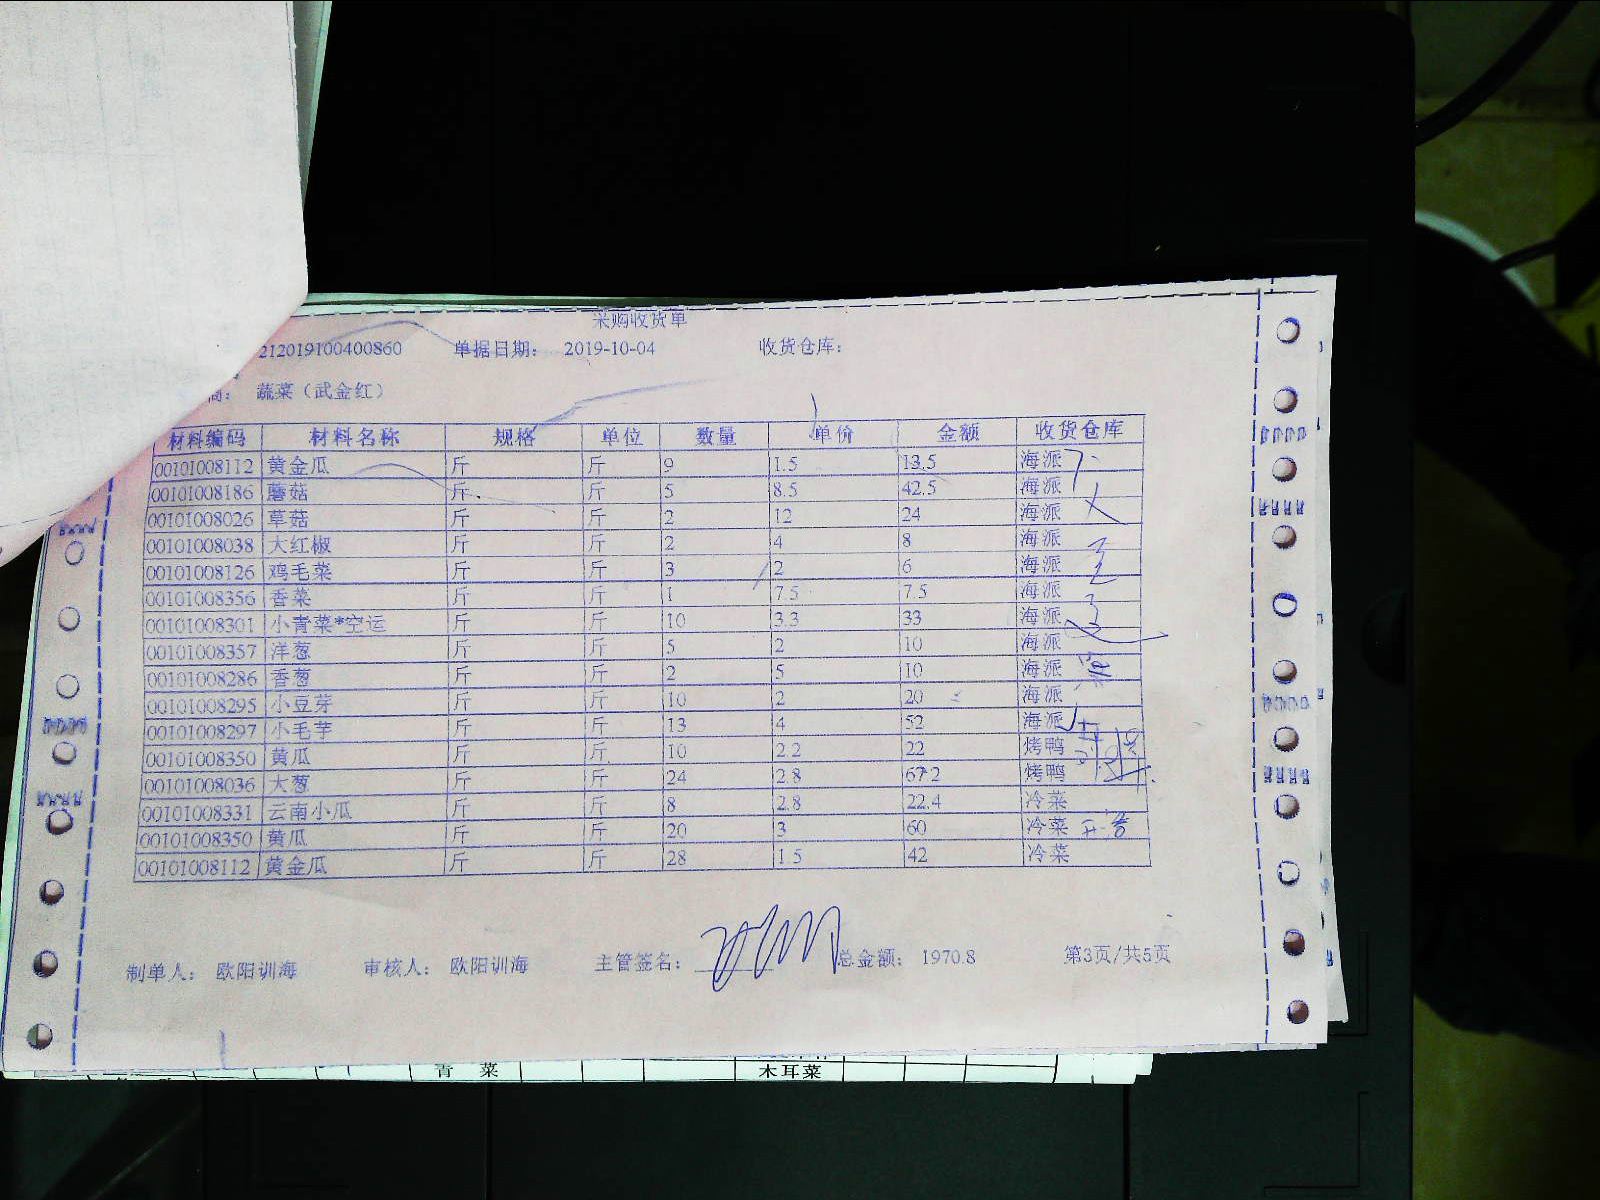 采购收货单
212019100400860 单据日期： 2019-10-04 收货仓库：
商： 蔬菜（武金红）
材料编码 材料名称 规格 单位 数量 单价 金额 收货仓库
00101008112 黄金瓜 斤 斤 9 1.5 13.5 海派
00101008186 蘑菇 斤 斤 5 8.5 42.5 海派
00101008026 草菇 斤 斤 2 12 24 海派
00101008038 大红椒 斤 斤 2 4 8 海派
00101008126 鸡毛菜 斤 斤 3 2 6 海派
00101008356 香菜 斤 斤 1 7.5 7.5 海派
00101008301 小青菜*空运 斤 斤 10 3.3 33 海派
00101008357 洋葱 斤 斤 5 2 10 海派
00101008286 香葱 斤 斤 2 5 10 海派
00101008295 小豆芽 斤 斤 10 2 20 海派
00101008297 小毛芋 斤 斤 13 4 52 海派
00101008350 黄瓜 斤 斤 10 2.2 22 烤鸭
00101008036 大葱 斤 斤 24 2.8 67.2 烤鸭
00101008331 云南小瓜 斤 斤 8 2.8 22.4 冷菜
00101008350 黄瓜 斤 斤 20 3 60 冷菜
00101008112 黄金瓜 斤 斤 28 1.5 42 冷菜
制单人： 欧阳训海 审核人： 欧阳训海 主管签名： 总金额： 1970.8 第3页/共5页
青 菜 木耳菜